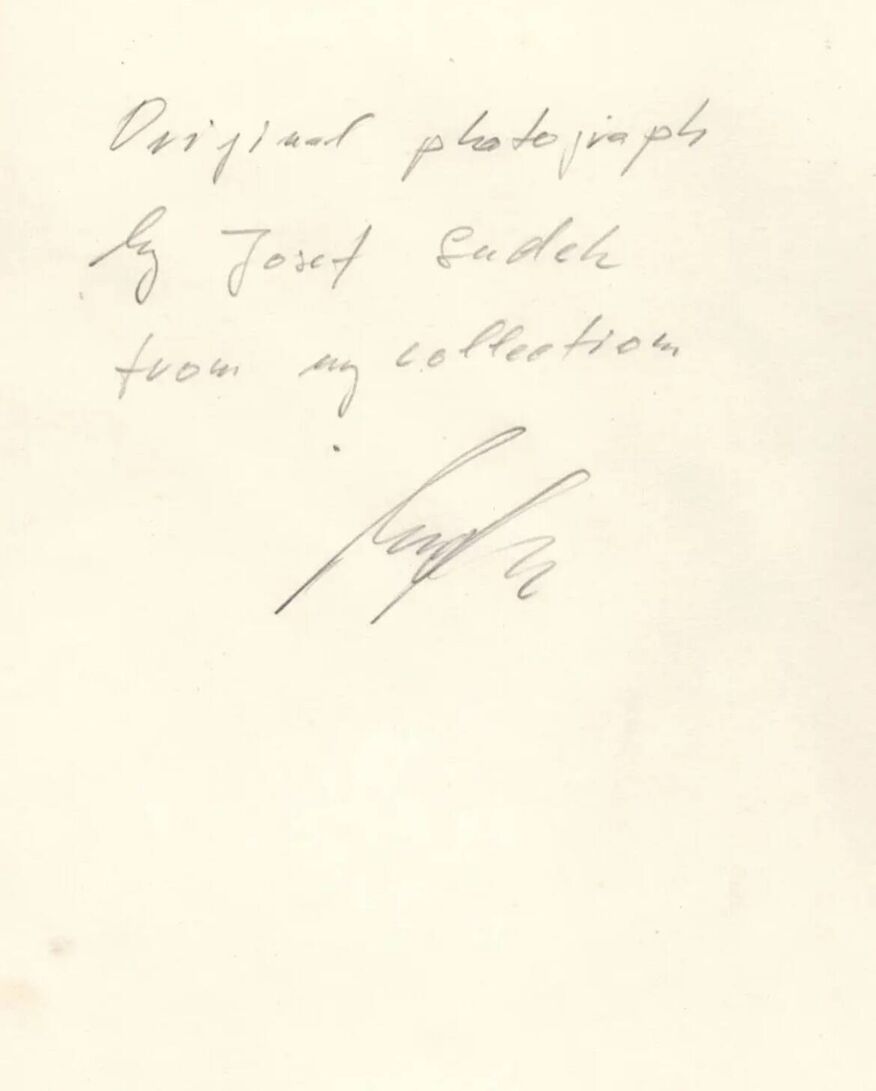 Original photograph
by Josef Sudek
from my collection